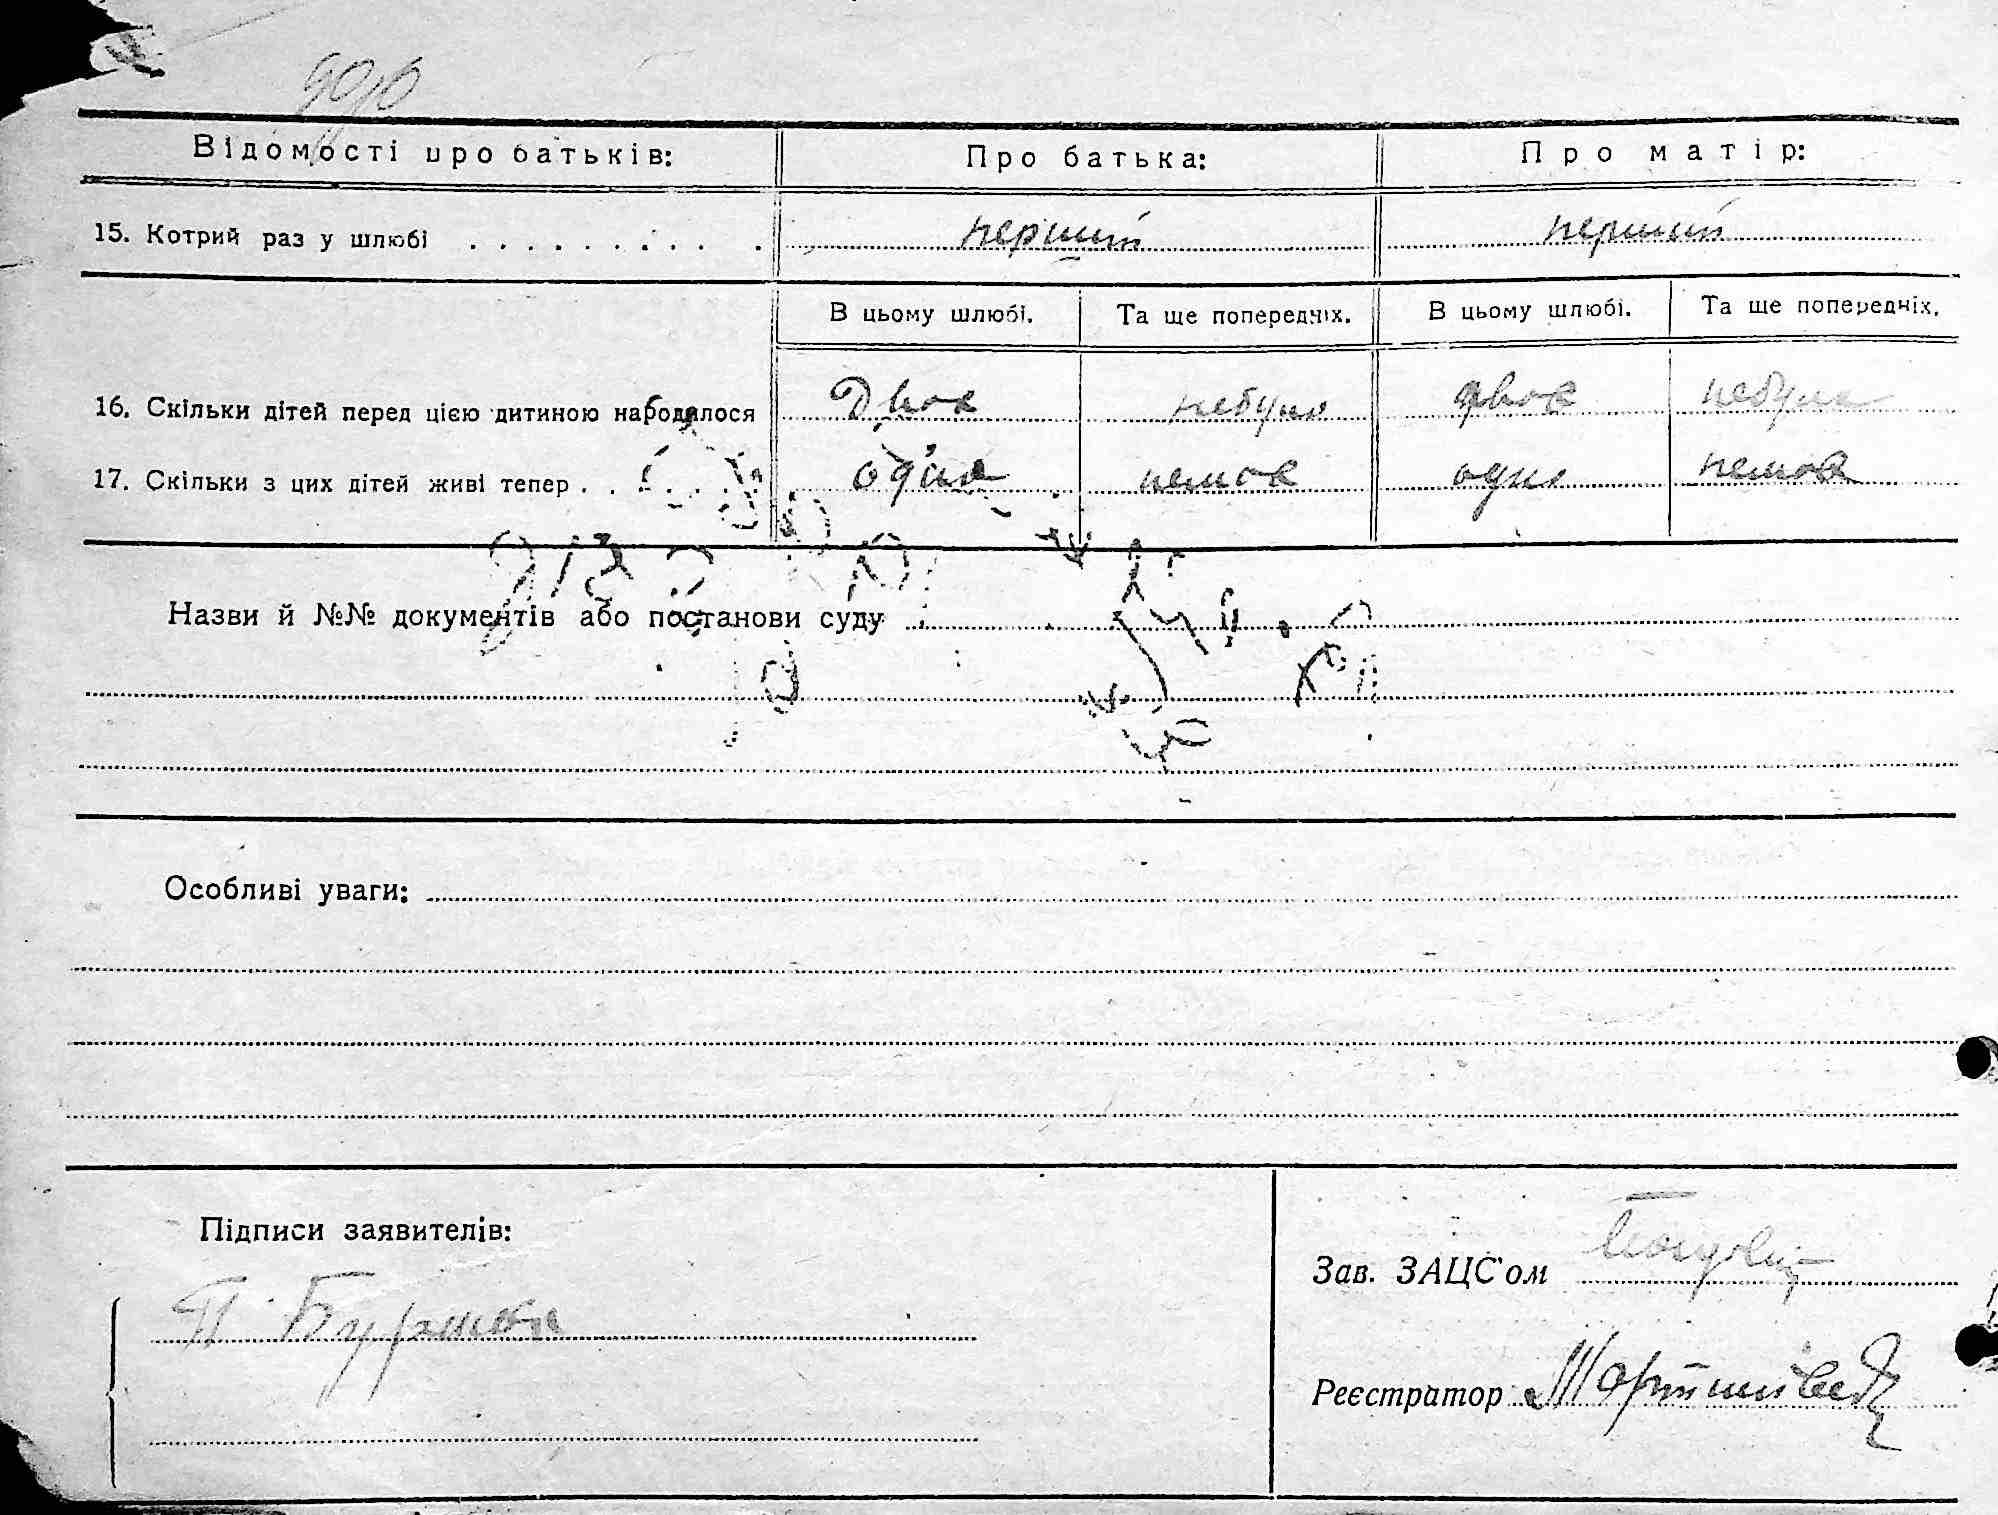 Відомості про батьків: Про батька: Про матір:
15. Котрий раз у шлюбі . . . . . . . . . . . перший перший
В цьому шлюбі. Та ще попередніх. В цьому шлюбі. Та ще попередніх.
16. Скільки дітей перед цією дитиною народилося двоє небуло двоє небуло
17. Скільки з цих дітей живі тепер . . . . . . одно немає одно немає
Назви й №№ документів або постанови суду
Особливі уваги:
Підписи заявителів:
Зав. ЗАЦС'ом
П.
Реєстратор